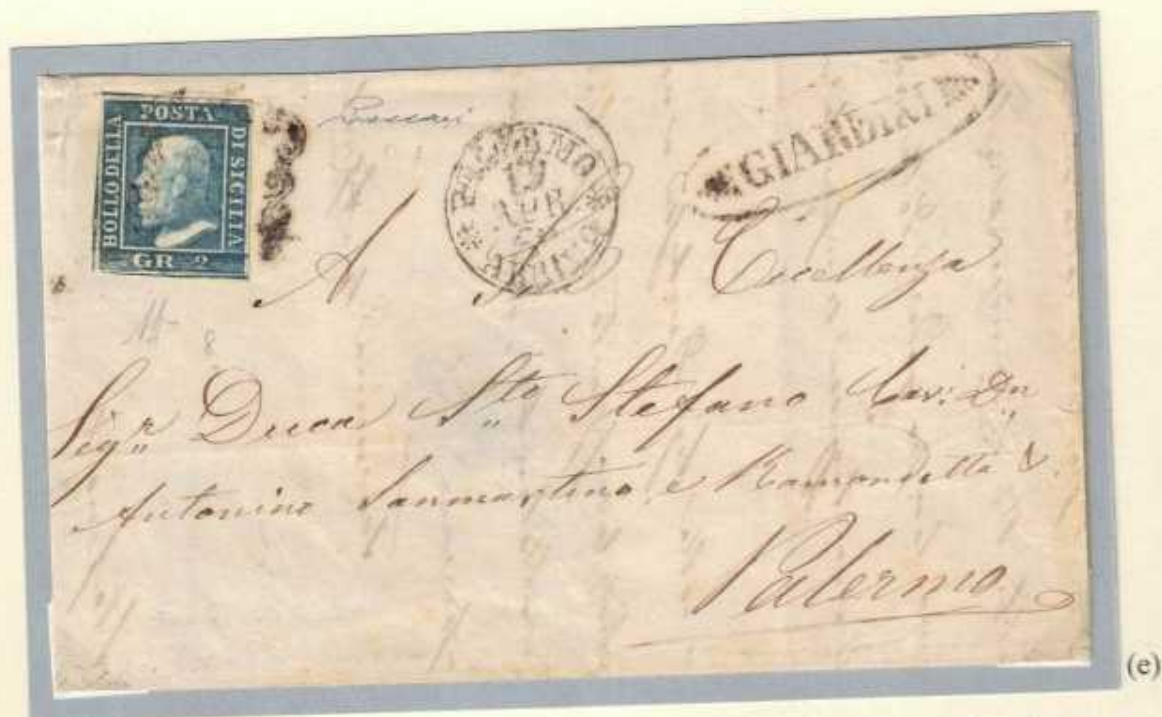 POSTA
BOLLO DELLA
DI SICILIA
GR 2
PALERMO
APR
GIARDINI
A Sua Eccellenza
Sigr. Duca Sto Stefano Cav: Dn
Antonino Sanmartino e Ramondetta &.
Palermo
(e)